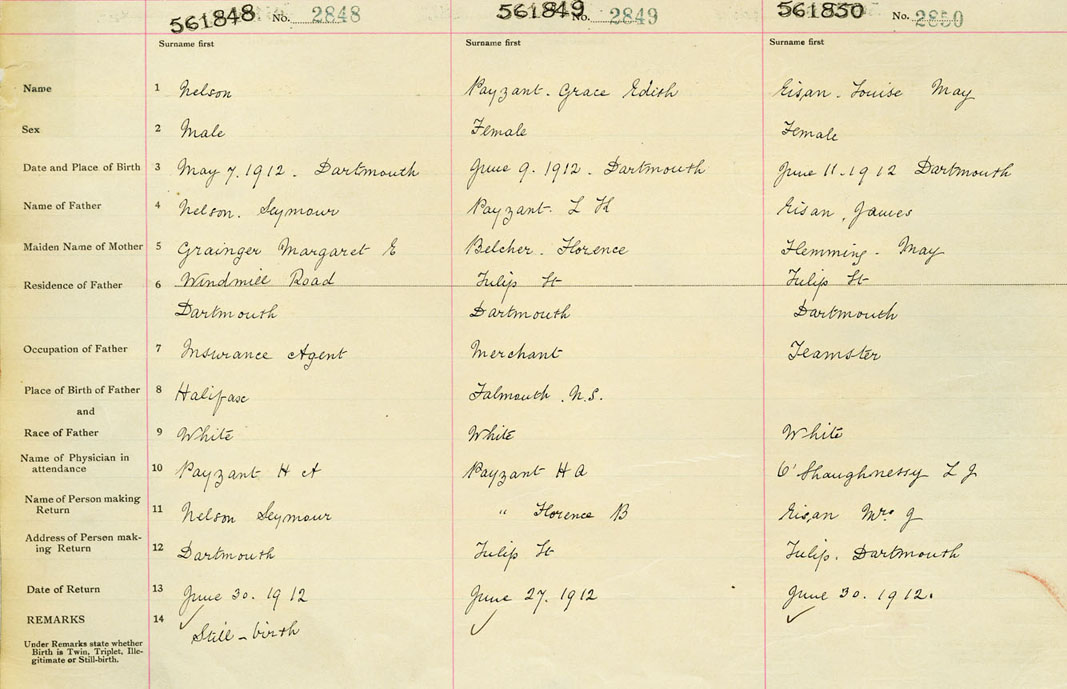 561848 No. 2848 561849 No. 2849 561850 No. 2850
Surname first Surname first Surname first
Name 1 Nelson Payzant. Grace Edith Eisan. Louise May
Sex 2 Male Female Female
Date and Place of Birth 3 May 7. 1912. Dartmouth June 9. 1912. Dartmouth June 11. 1912 Dartmouth
Name of Father 4 Nelson. Seymour Payzant. L H Eisan, James
Maiden Name of Mother 5 Grainger Margaret E Belcher. Florence Flemming. May
Residence of Father 6 Windmill Road Tulip St Tulip St
Dartmouth Dartmouth Dartmouth
Occupation of Father 7 Insurance Agent Merchant Teamster
Place of Birth of Father 8 Halifax Falmouth. N.S.
and
Race of Father 9 White White White
Name of Physician in
attendance 10 Payzant H A Payzant H A O'Shaughnessy L J
Name of Person making
Return 11 Nelson Seymour " Florence B Eisan Mrs J
Address of Person mak-
ing Return 12 Dartmouth Tulip St Tulip. Dartmouth
Date of Return 13 June 30. 1912 June 27. 1912 June 30. 1912.
REMARKS 14 Still-birth
Under Remarks state whether
Birth is Twin, Triplet, Ille-
gitimate or Still-birth.